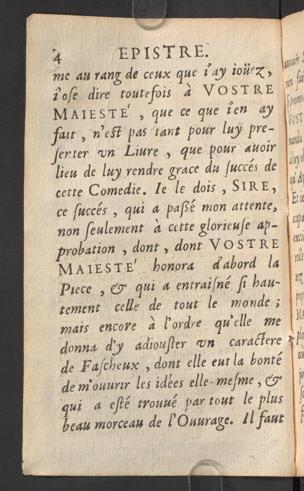 4 EPISTRE.
me au rang de ceux que i'ay ioüez,
i'ose dire toutefois à VOSTRE
MAIESTÉ, que ce que i'en ay
fait, n'est pas tant pour luy pre-
senter vn Liure, que pour auoir
lieu de luy rendre grace du succés de
cette Comedie. Ie le dois, SIRE,
ce succés, qui a passé mon attente,
non seulement à cette glorieuse ap-
probation, dont, dont VOSTRE
MAIESTÉ honora d'abord la
Piece, & qui a entraisné si hau-
tement celle de tout le monde;
mais encore à l'ordre qu'elle me
donna d'y adiouster vn caractere
de Fascheux, dont elle eut la bonté
de m'ouurir les idées elle-mesme, &
qui a esté trouué par tout le plus
beau morceau de l'Ouurage. Il faut